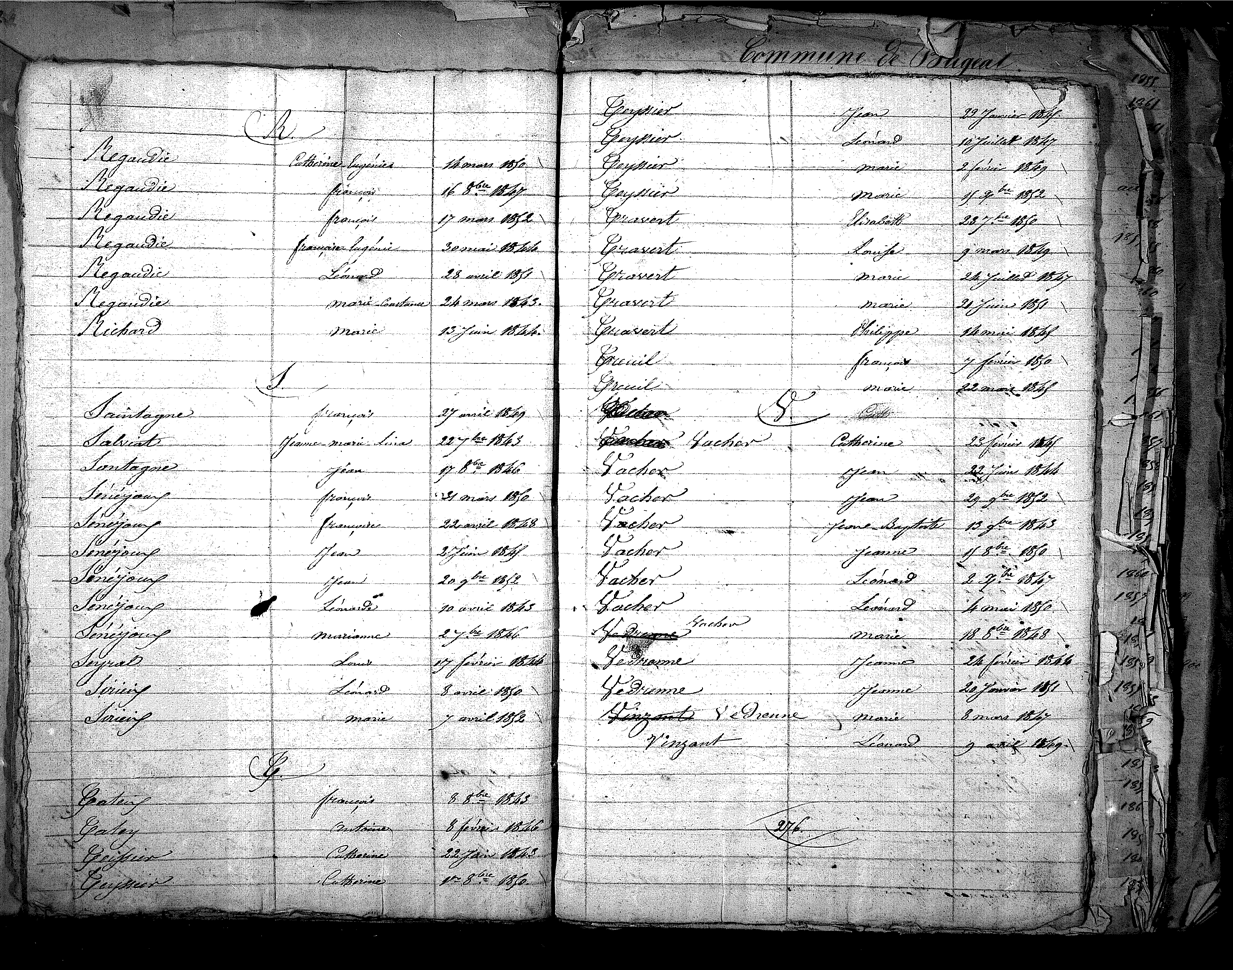 R.
Regaudie Catherine Eugénie 14 mars 1850
Regaudie françois 16 8bre 1847
Regaudie françois 17 mars 1852
Regaudie françoise Eugénie 30 mai 1844
Regaudie Léonard 28 avril 1851
Regaudie marie Constance 24 mars 1843
Richard marie 13 Juin 1844
S.
Saintagne françois 27 avril 1849
Salvert Jeanne marie 22 7bre 1843
Sontagne Jean 17 8bre 1846
Senéjoux françois 21 mars 1850
Senéjoux françoise 22 avril 1848
Senéjoux Jean 2 Juin 1845
Senéjoux Jean 20 9bre 1852
Senéjoux Léonarde 10 avril 1843
Senéjoux marianne 2 7bre 1846
Seyral Louis 17 février 1844
Sirieix Léonard 8 avril 1850
Sirieix marie 7 avril 1852
T.
Tateix françois 8 8bre 1843
Tatey antoine 8 février 1846
Teissier Catherine 22 Juin 1843
Teyssier Catherine 1er 8bre 1850
Commune de Bugeat
Teyssier Jean 29 Janvier 1845
Teyssier Léonard 10 Juillet 1847
Teyssier marie 2 février 1849
Teyssier marie 15 9bre 1852
Travert Elisabeth 28 7bre 1850
Travert Louise 9 mars 1849
Travert marie 24 Juillet 1847
Travert marie 21 Juin 1851
Travert Philippe 14 mai 1845
Treuil françois 7 février 1850
Treuil marie 22 mars 1845
Vacher V.
Vacher Vacher Catherine 23 février 1845
Vacher Jean 22 Juin 1844
Vacher Jean 29 9bre 1852
Vacher Jeanne Baptiste 13 9bre 1843
Vacher Jeanne 15 8bre 1850
Vacher Léonard 2 9bre 1847
Vacher Léonard 4 mai 1850
Vedrenne Vacher marie 18 8bre 1848
Vedrenne Jeanne 24 février 1844
Vedrenne Jeanne 20 Janvier 1851
Vinzant Vedrenne marie 8 mars 1847
Vinzant Léonard 9 avril 1849
276